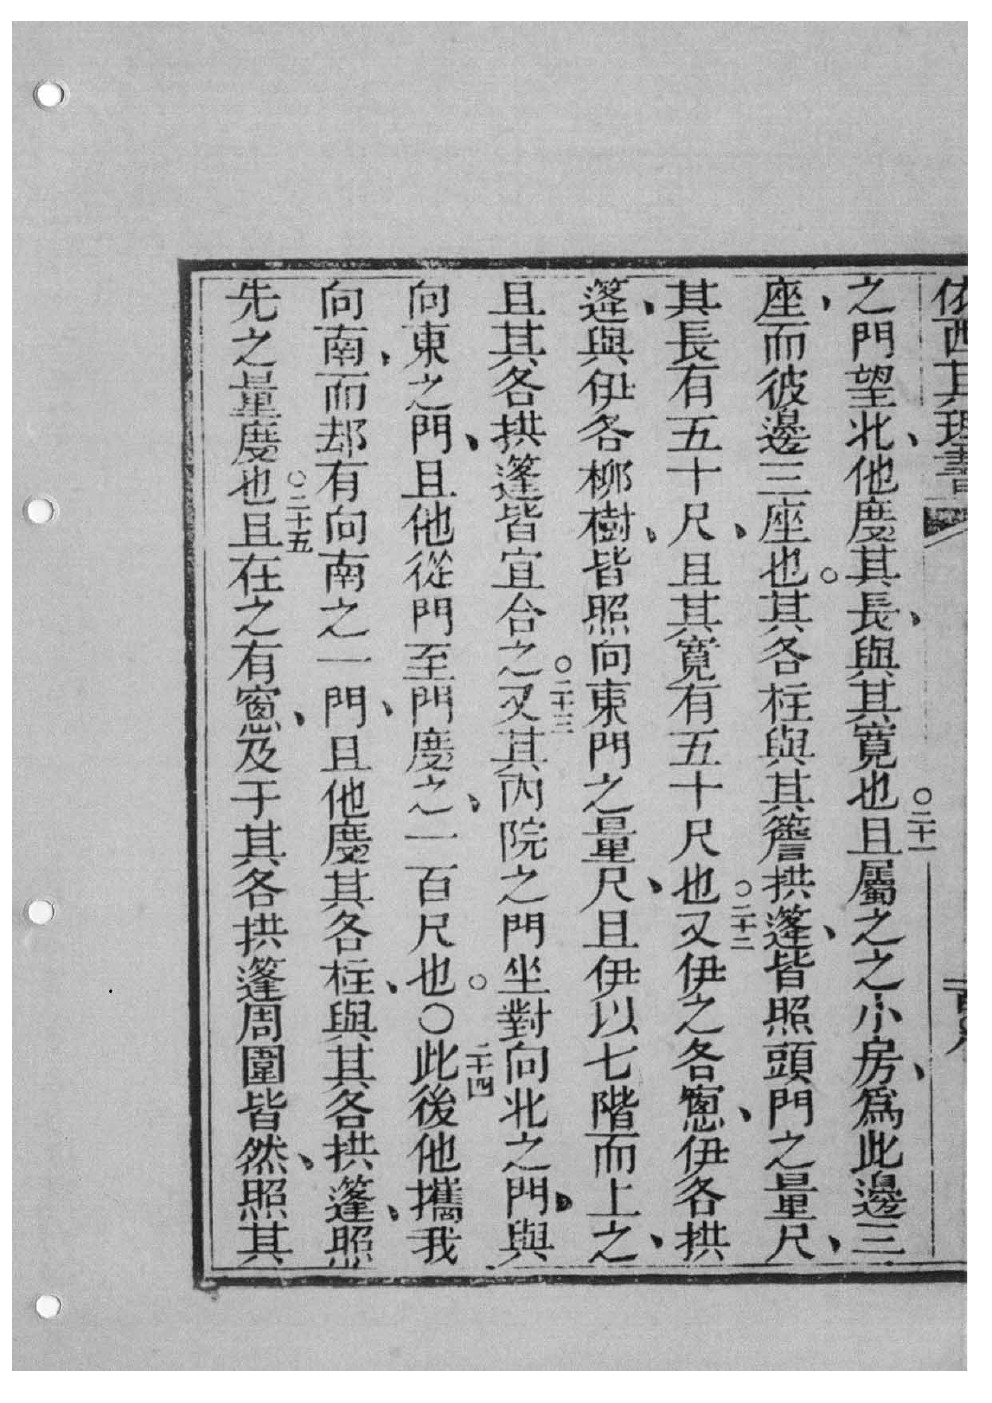 依西其理書
之門望北、他度其長、與其寬也○二十一且屬之之小房、爲此邊三
座、而彼邊三座也。其各柱與其簷拱蓬、皆照頭門之量尺、
其長有五十尺、且其寬有五十尺也○二十二又伊之各窻、伊各拱
蓬、與伊各柳樹、皆照向東門之量尺、且伊以七階而上之、
且其各拱蓬皆宜合之○二十三又其內院之門坐對向北之門、與
向東之門、且他從門至門度之、一百尺也。○二十四此後他攜我
向南、而却有向南之一門、且他度其各柱、與其各拱蓬、照
先之量度也○二十五且在之有窻、及于其各拱蓬周圍皆然、照其